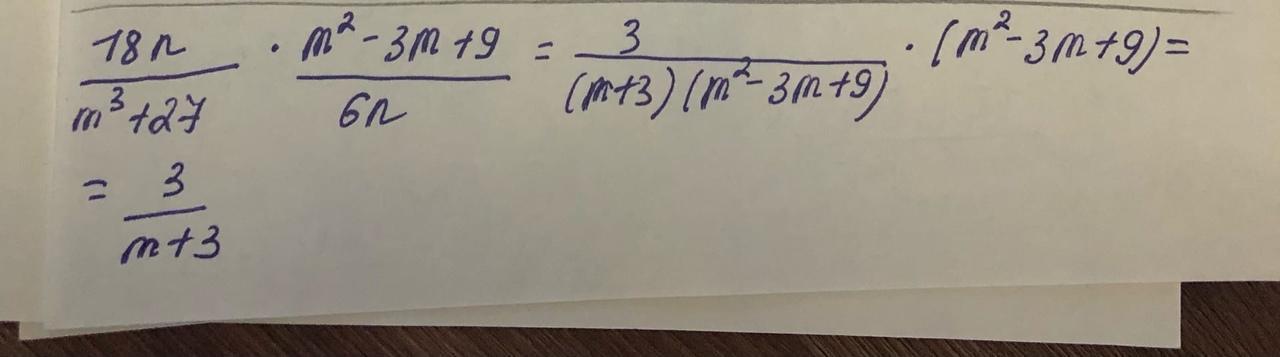 18n/(m³+27) · (m²-3m+9)/(6n) = 3/((m+3)(m²-3m+9)) · (m²-3m+9) =
= 3/(m+3)